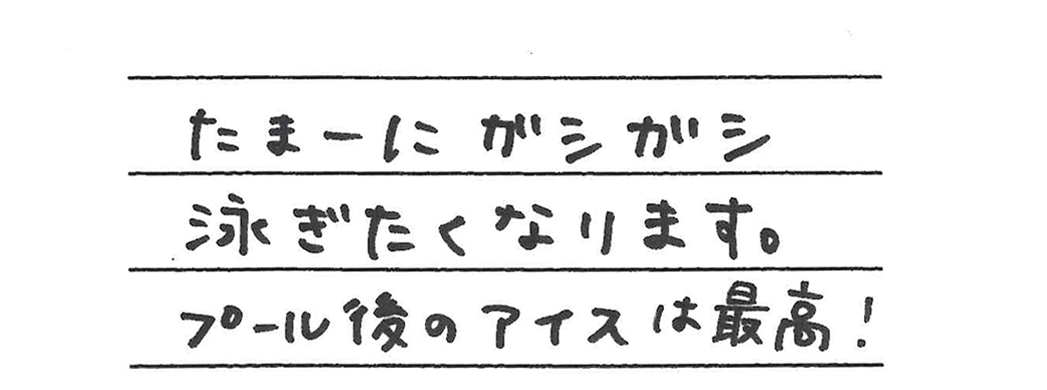 たまーにガシガシ
泳ぎたくなります。
プール後のアイスは最高!